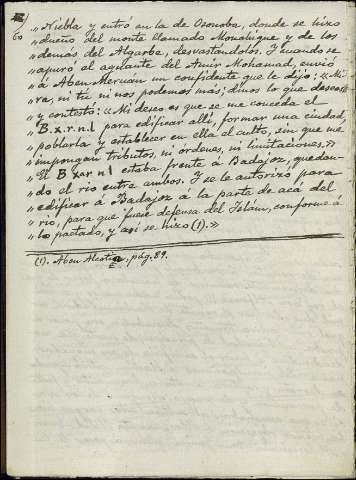 60
" Niebla y entró en la de Osonoba, donde se hizo
" dueño del monte llamado Monchique y de los
" demás del Algarbe, devastándolos. Y cuando se
" apuró el aguante del Amir Mohamad, envió
" á Aben Meruán un confidente que le dijo: «Mi
" ra, ni tú ni nos podemos más; dinos lo que deseas"
" y contestó: «Mi deseo es que se me conceda el
" B.x.r.n.l para edificar allí, formar una ciudad,
" poblarla y establecer en ella el culto, sin que me
" impongan tributos, ni órdenes, ni limitaciones."
" El B xar nl estaba frente á Badajoz, quedan-
" do el rio entre ambos. Y se le autorizó para
" edificar á Badajoz á la parte de acá del
" rio, para que fuese defensa del Islám, conforme á
" lo pactado, y así se hizo (1).»
(1). Aben Alcotía, pág. 89.